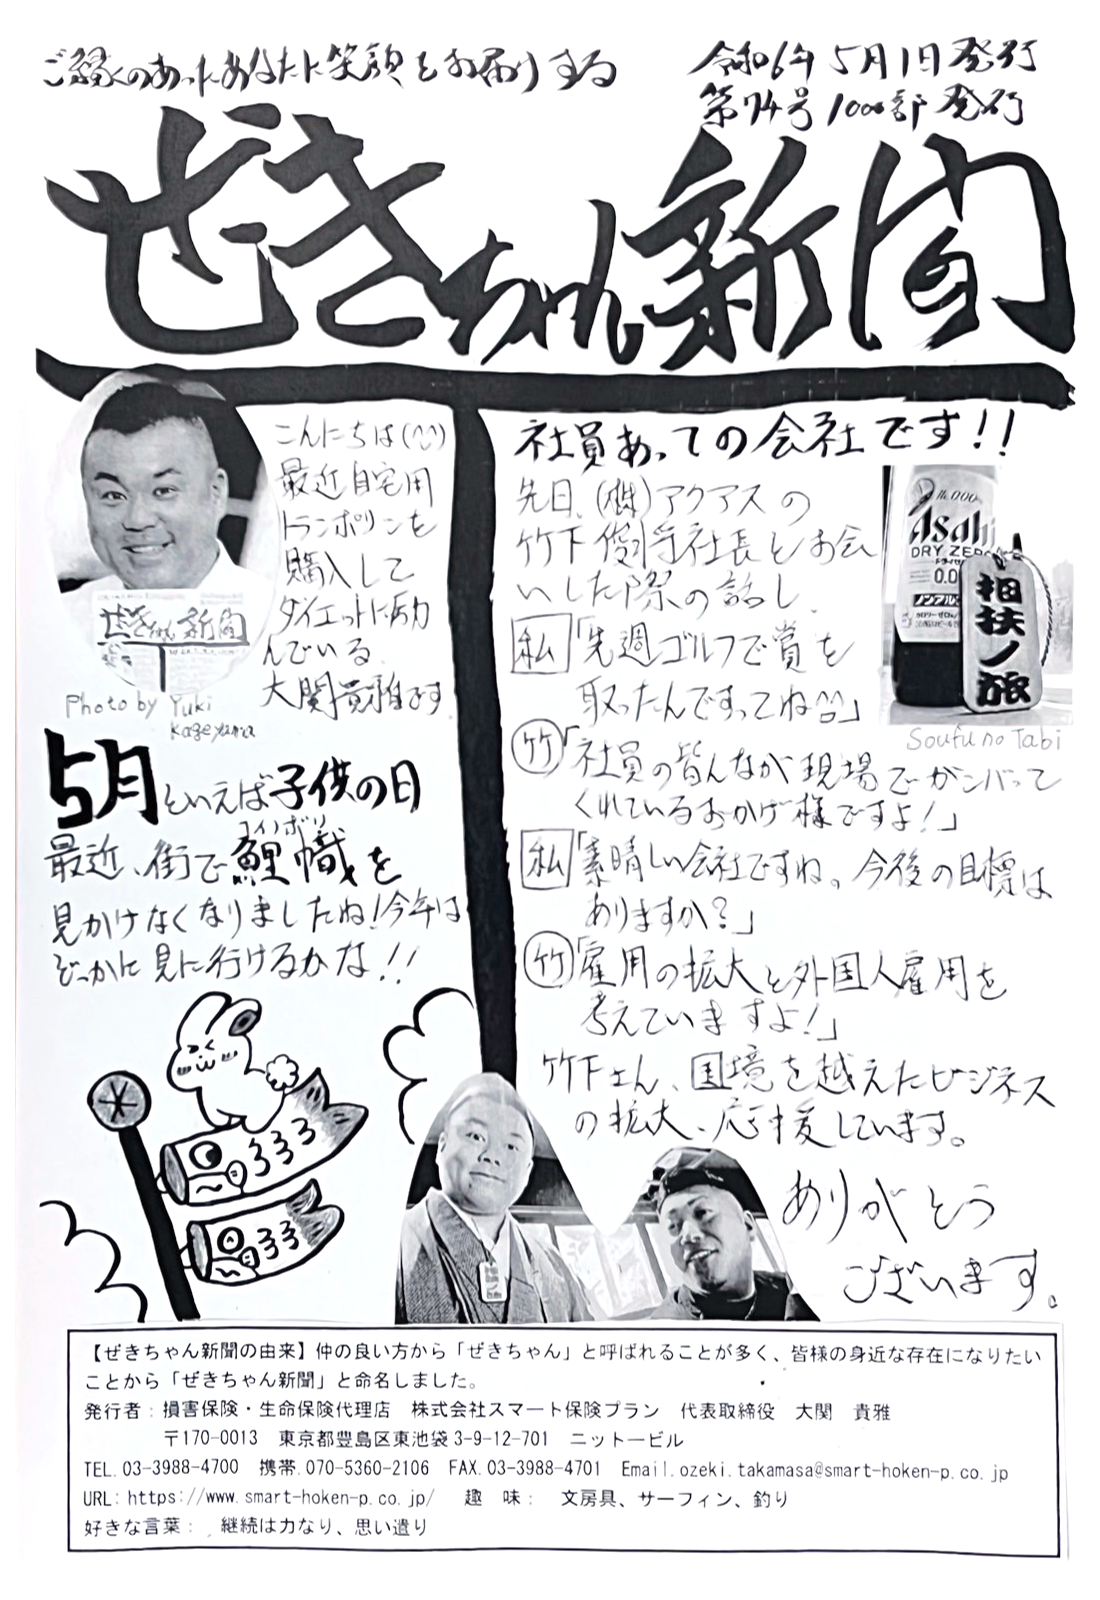 ご縁のあったあなたに笑顔をお届けする
令和6年5月1日発行
第74号1000部発行
ぜきちゃん新聞
こんにちは(^^)
最近自宅用
トランポリンを
購入して
ダイエットに励
んでいる
大関貴雅です
ぜきちゃん新聞
Photo by Yuki
Kageyama
5月といえば子供の日
コイノボリ
最近、街で鯉幟を
見かけなくなりましたね!今年は
どっかに見に行けるかな!!
社員あっての会社です!!
先日、(株)アクアスの
竹下 社長とお会
いした際の話し、
私「先週ゴルフで賞を
取ったんですってね^^」
竹「社員の皆んなが現場でガンバって
くれているおかげ様ですよ!」
私「素晴しい会社ですね。今後の目標は
ありますか?」
竹「雇用の拡大と外国人雇用を
考えていますよ!」
竹下さん、国境を越えたビジネス
の拡大、応援しています。
ありがとう
ございます。
Asahi
DRY ZERO
ドライゼロ
0.00
ノンアルコール
相扶ノ旅
Soufu no Tabi
相扶ノ旅
【ぜきちゃん新聞の由来】仲の良い方から「ぜきちゃん」と呼ばれることが多く、皆様の身近な存在になりたい
ことから「ぜきちゃん新聞」と命名しました。
発行者:損害保険・生命保険代理店 株式会社スマート保険プラン 代表取締役 大関 貴雅
〒170-0013 東京都豊島区東池袋3-9-12-701 ニットービル
TEL.03-3988-4700 携帯.070-5360-2106 FAX.03-3988-4701 Email.ozeki.takamasa@smart-hoken-p.co.jp
URL:https://www.smart-hoken-p.co.jp/ 趣 味: 文房具、サーフィン、釣り
好きな言葉: 継続は力なり、思い遣り